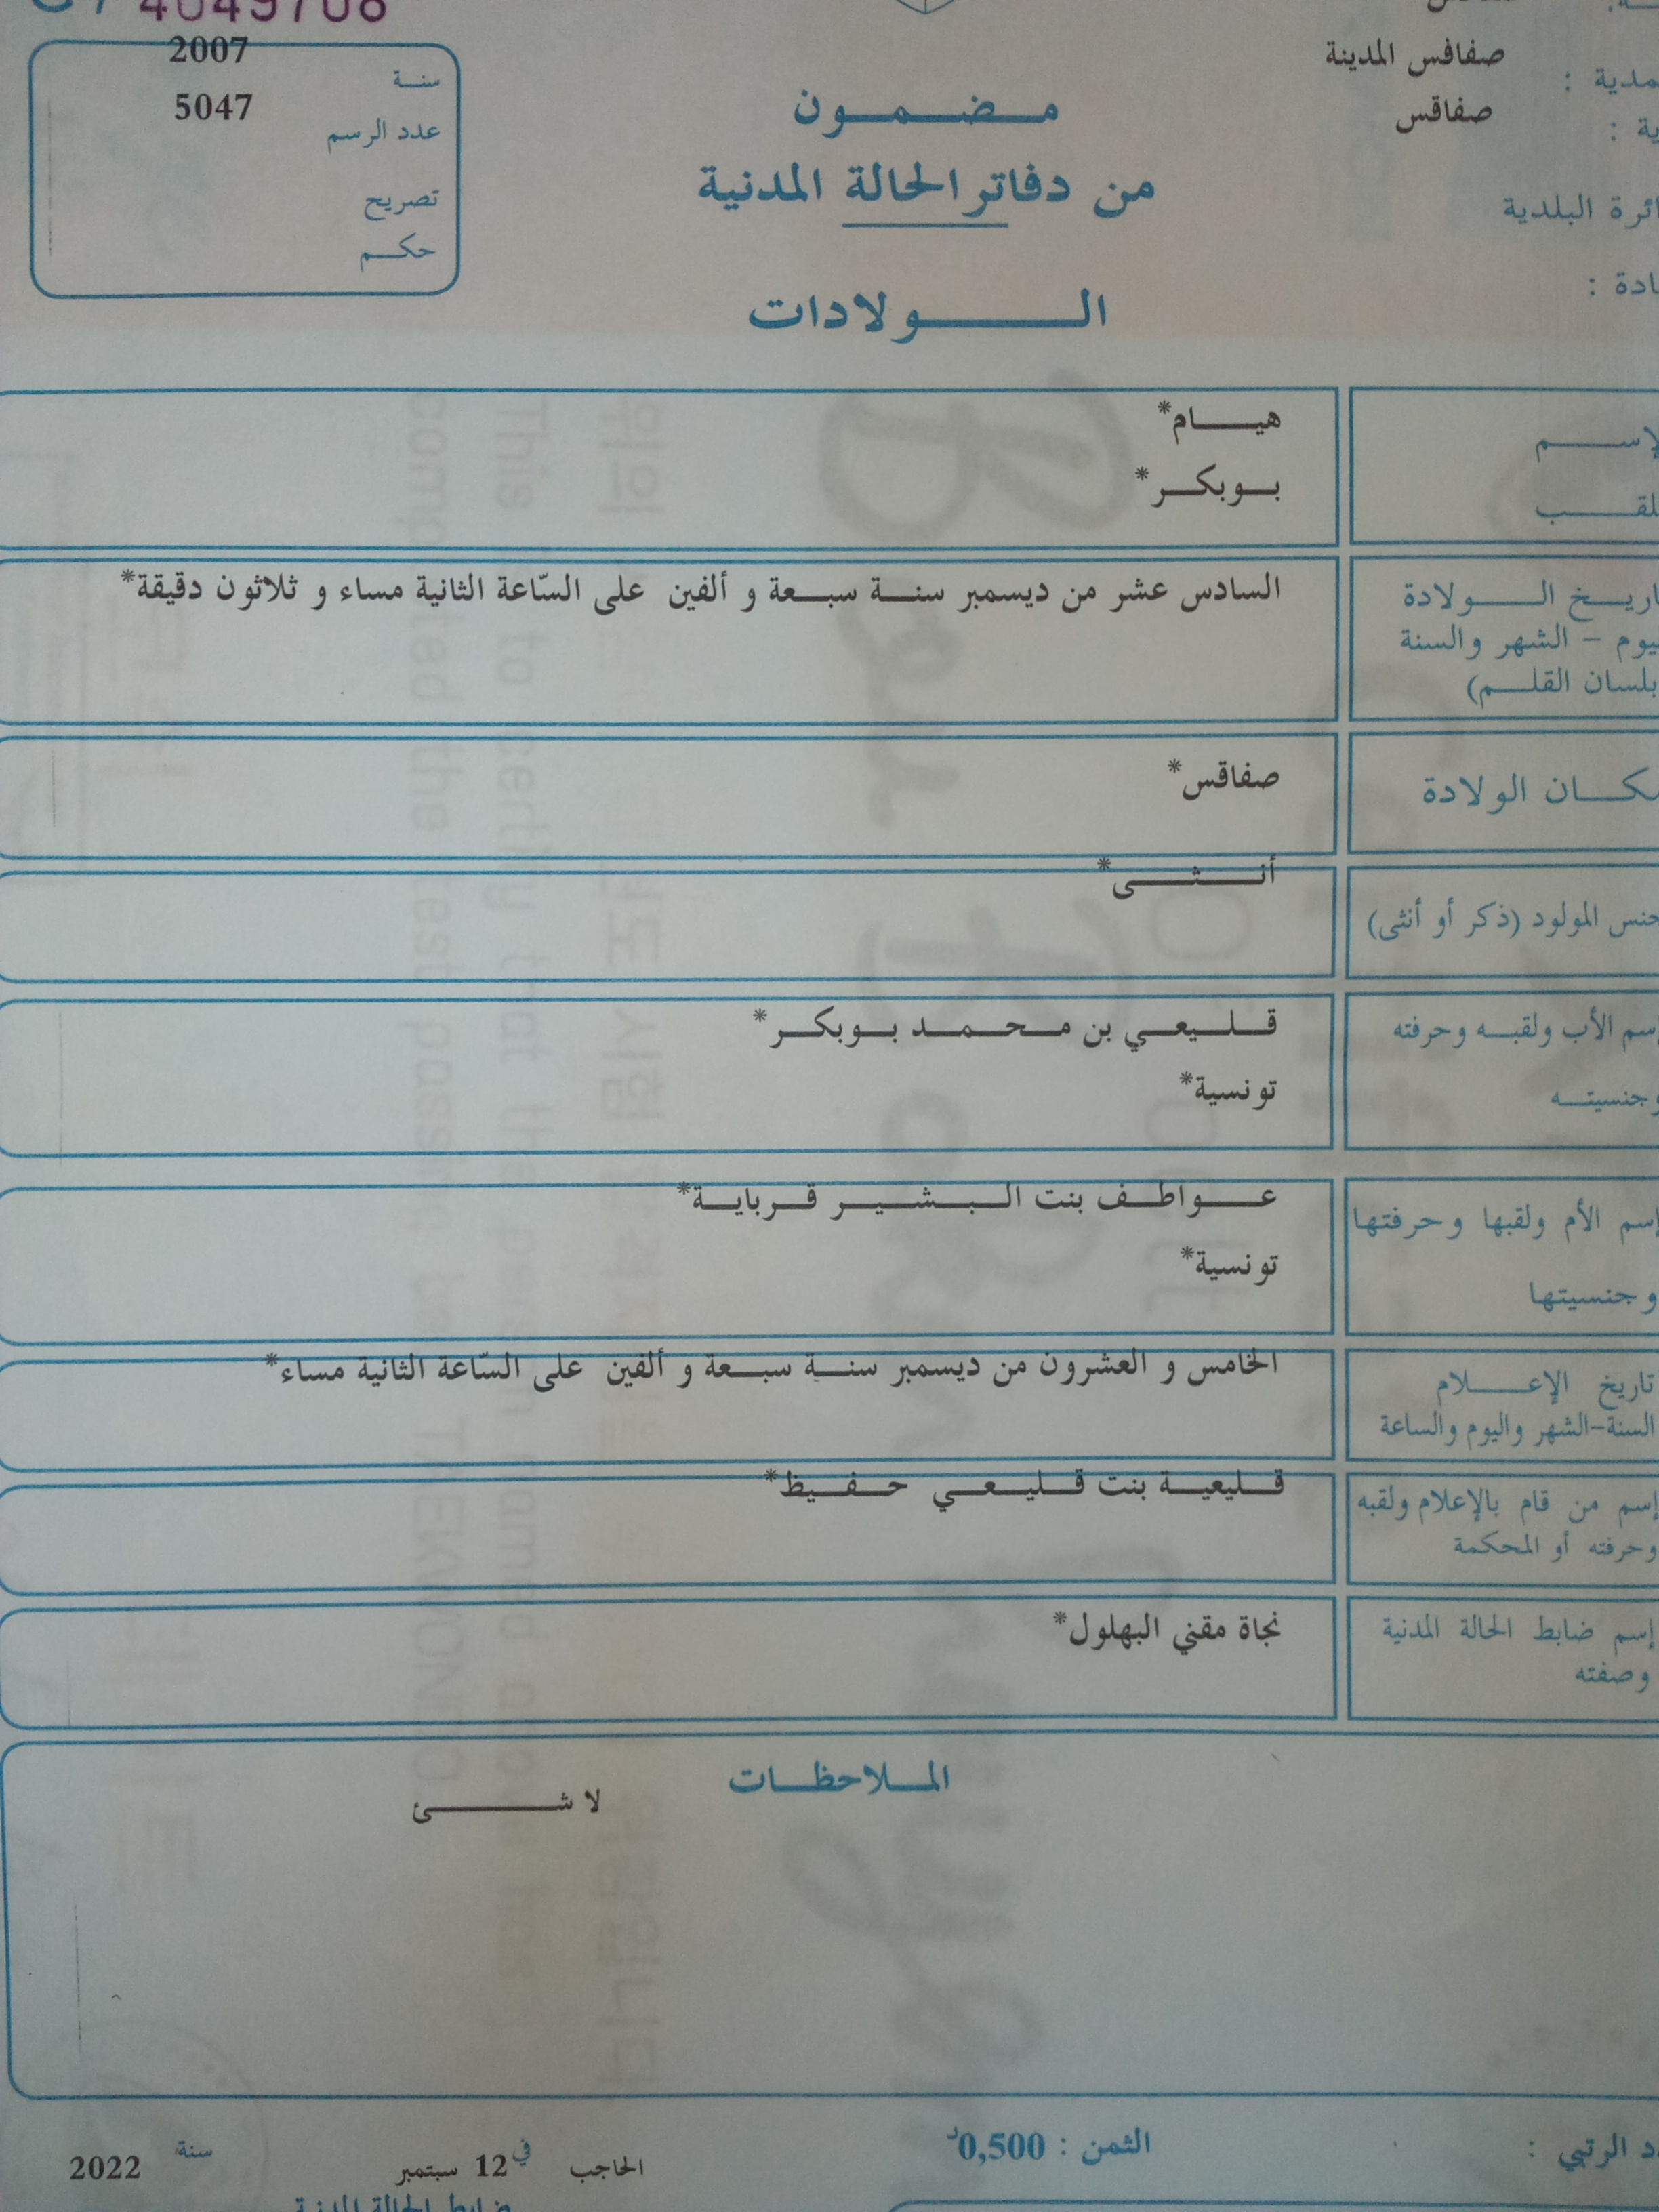 4049708
2007
سنة
5047
عدد الرسم
تصريح
حكم
صفاقس المدينة
صفاقس
مضمون
من دفاتر الحالة المدنية
الولادات
هيام*
بوبكر*
السادس عشر من ديسمبر سنة سبعة و ألفين على السّاعة الثانية مساء و ثلاثون دقيقة*
الولادة
– الشهر والسنة
القلم)
صفاقس*
الولادة
أنثى*
المولود (ذكر أو أنثى)
الأب ولقبه وحرفته
قليعي بن محمد بوبكر*
وجنسيته
تونسية*
إسم الأم ولقبها وحرفتها
عواطف بنت البشير قرباية*
وجنسيتها
تونسية*
تاريخ الإعلام
السنة-الشهر واليوم والساعة
الخامس و العشرون من ديسمبر سنة سبعة و ألفين على السّاعة الثانية مساء*
إسم من قام بالإعلام ولقبه
وحرفته أو المحكمة
قليعية بنت قليعي حفيظ*
إسم ضابط الحالة المدنية
وصفته
نجاة مقني البهلول*
الملاحظات
لا شئ
الرتبي :
الثمن : 0,500د
الحاجب في 12 سبتمبر سنة 2022
ضابط الحالة المدنية